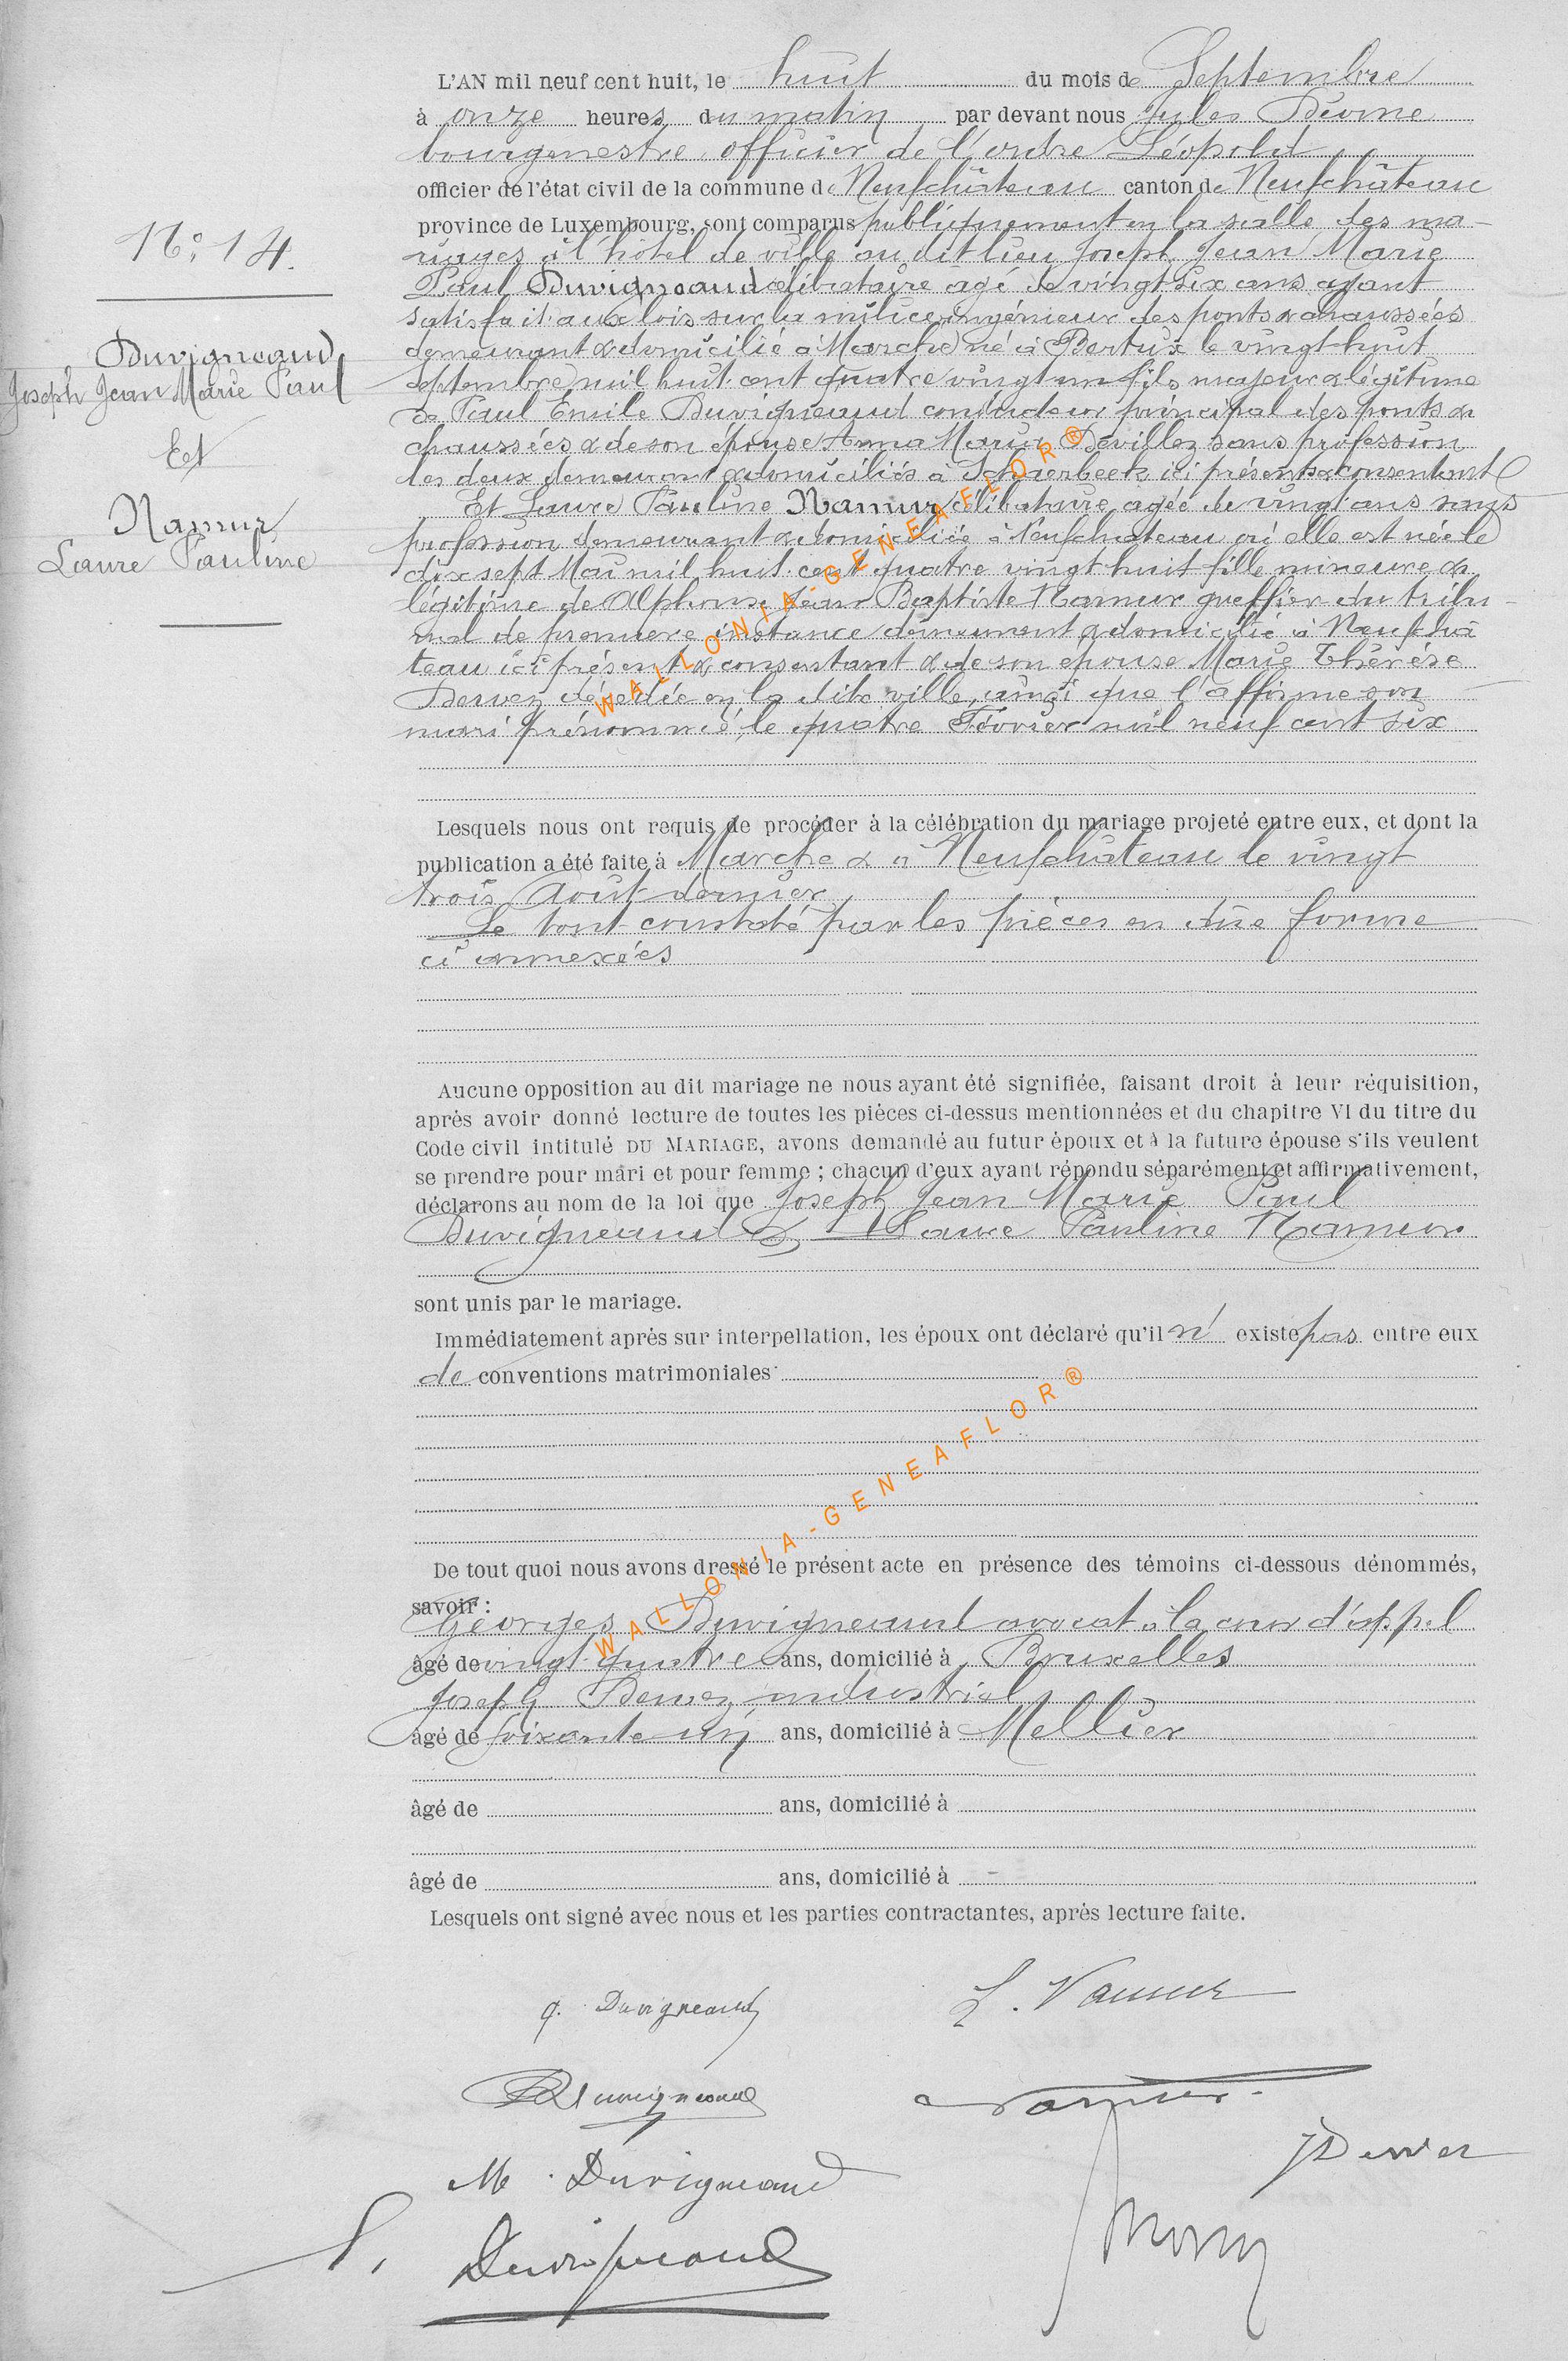 L'AN mil neuf cent huit, le huit du mois de Septembre
à onze heures du matin par devant nous Jules
bourgmestre, officier de l'ordre Léopold
officier de l'état civil de la commune de Neufchâteau canton de Neufchâteau
province de Luxembourg, sont comparus publiquement en la salle des ma-
riages à l'hôtel de ville au dit lieu Joseph Jean Marie
Paul Duvigneaud célibataire agé de vingt six ans ayant
satisfait aux lois sur la milice ingénieur des ponts & chaussées
demeurant & domicilié à Marche né à Bertrix le vingt huit
Septembre mil huit cent quatre vingt un fils majeur & légitime
de Paul Emile Duvigneaud conducteur principal des ponts &
chaussées & de son épouse Anna Maria Devillez sans profession
les deux demeurant & domiciliés à Schaerbeek ici présents & consentant
Et Laure Pauline Namur célibataire agée de vingt ans sans
profession demeurant & domiciliée à Neufchateau où elle est née le
dix sept Mai mil huit cent quatre vingt huit fille mineure &
légitime de Alphonse Jean Baptiste Namur greffier du tribu-
nal de première instance demeurant & domicilié à Neufchâ
teau ici présent & consentant & de son épouse Marie Thérèse
Dewez décédée en la dite ville, ainsi que l'affirme son
mari prénommé, le quatre Février mil neuf cent six
N° 14.
Duvigneaud
Joseph Jean Marie Paul
Et
Namur
Laure Pauline
Lesquels nous ont requis de procéder à la célébration du mariage projeté entre eux, et dont la
publication a été faite à Marche & à Neufchâteau le vingt
trois Aout dernier
Le tout constaté par les pièces en dûe forme
ci annexées
Aucune opposition au dit mariage ne nous ayant été signifiée, faisant droit à leur réquisition,
après avoir donné lecture de toutes les pièces ci-dessus mentionnées et du chapitre VI du titre du
Code civil intitulé DU MARIAGE, avons demandé au futur époux et à la future épouse s'ils veulent
se prendre pour mari et pour femme ; chacun d'eux ayant répondu séparément et affirmativement,
déclarons au nom de la loi que Joseph Jean Marie Paul
Duvigneaud & Laure Pauline Namur
sont unis par le mariage.
Immédiatement après sur interpellation, les époux ont déclaré qu'il n' existe pas entre eux
de conventions matrimoniales
De tout quoi nous avons dressé le présent acte en présence des témoins ci-dessous dénommés,
savoir :
Georges Duvigneaud avocat à la cour d'appel
âgé de vingt quatre ans, domicilié à Bruxelles
Joseph Dewez industriel
âgé de soixante un ans, domicilié à Mellier
âgé de ans, domicilié à
âgé de ans, domicilié à
Lesquels ont signé avec nous et les parties contractantes, après lecture faite.
J. Duvigneaud
L. Namur
Duvigneaud
Namur
M. Duvigneaud
J Dewez
Duvigneaud
WALLONIA-GENEAFLOR®
WALLONIA-GENEAFLOR®